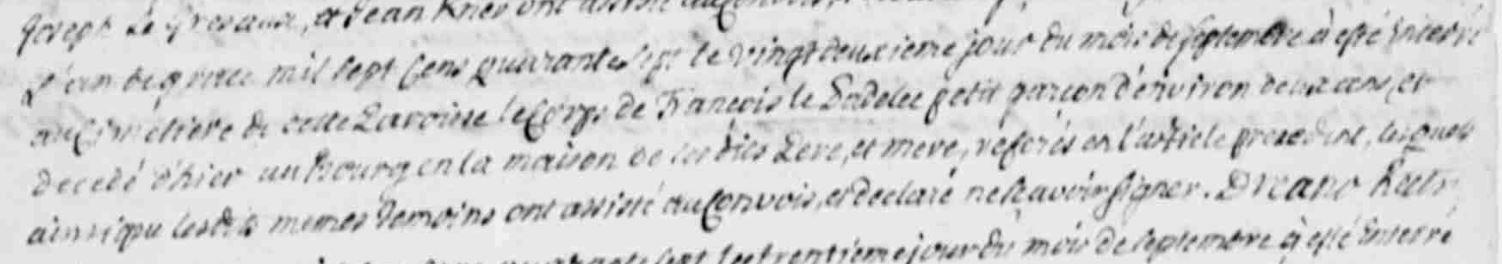 joseph Le et Jean ont assisté au Convois
L'an de grace mil sept Cens quarante sept le vingt deuxieme jour du mois de septembre à esté Enterré
au Cimetiere de cette Paroisse le Corps de François le Padelec petit garcon d'environ deux ans, et
decedé d'hier au Bourg en la maison de ses dits Pere, et mere, referés en l'article precedent, lesquels
ainsi que lesdits memes temoins ont assisté au Convois, et declaré ne sçavoir signer. Dreano Rectr
sept le trentieme jour du mois de septembre à esté Enterré